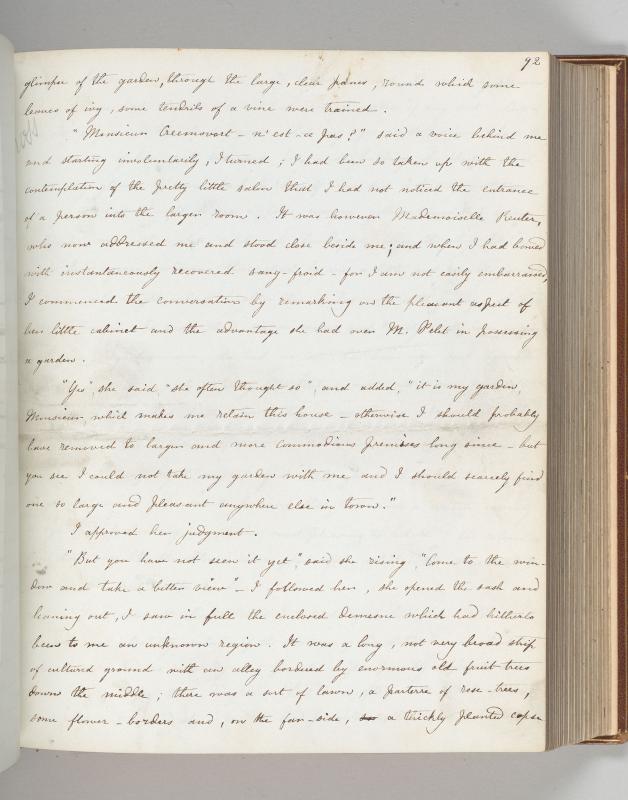 92
glimpse of the garden, through the large, clear panes, round which some
leaves of ivy, some tendrils of a vine were trained.
"Monsieur Creemsvort - n'est-ce pas?" said a voice behind me
and starting involuntarily, I turned; I had been so taken up with the
contemplation of the pretty little salon that I had not noticed the entrance
of a person into the larger room. It was however Mademoiselle Reuter,
who now addressed me and stood close beside me; and when I had bowed
with instantaneously recovered sang-froid - for I am not easily embarrassed,
I commenced the conversation by remarking on the pleasant aspect of
her little cabinet and the advantage she had over M. Pelet in possessing
a garden.
"Yes", she said, "she often thought so", and added, "it is my garden,
Monsieur, which makes me retain this house - otherwise I should probably
have removed to larger and more commodious premises long since - but
you see I could not take my garden with me and I should scarcely find
one so large and pleasant anywhere else in town."
I approved her judgment.
"But you have not seen it yet", said she rising, "Come to the win-
dow and take a better view" - I followed her, she opened the sash and
leaning out, I saw in full the enclosed demesne which had hitherto
been to me an unknown region. It was a long, not very broad strip
of cultured ground with an alley bordered by enormous old fruit-trees
down the middle; there was a sort of lawn, a parterre of rose-trees,
some flower-borders and, on the far-side, a thickly planted copse